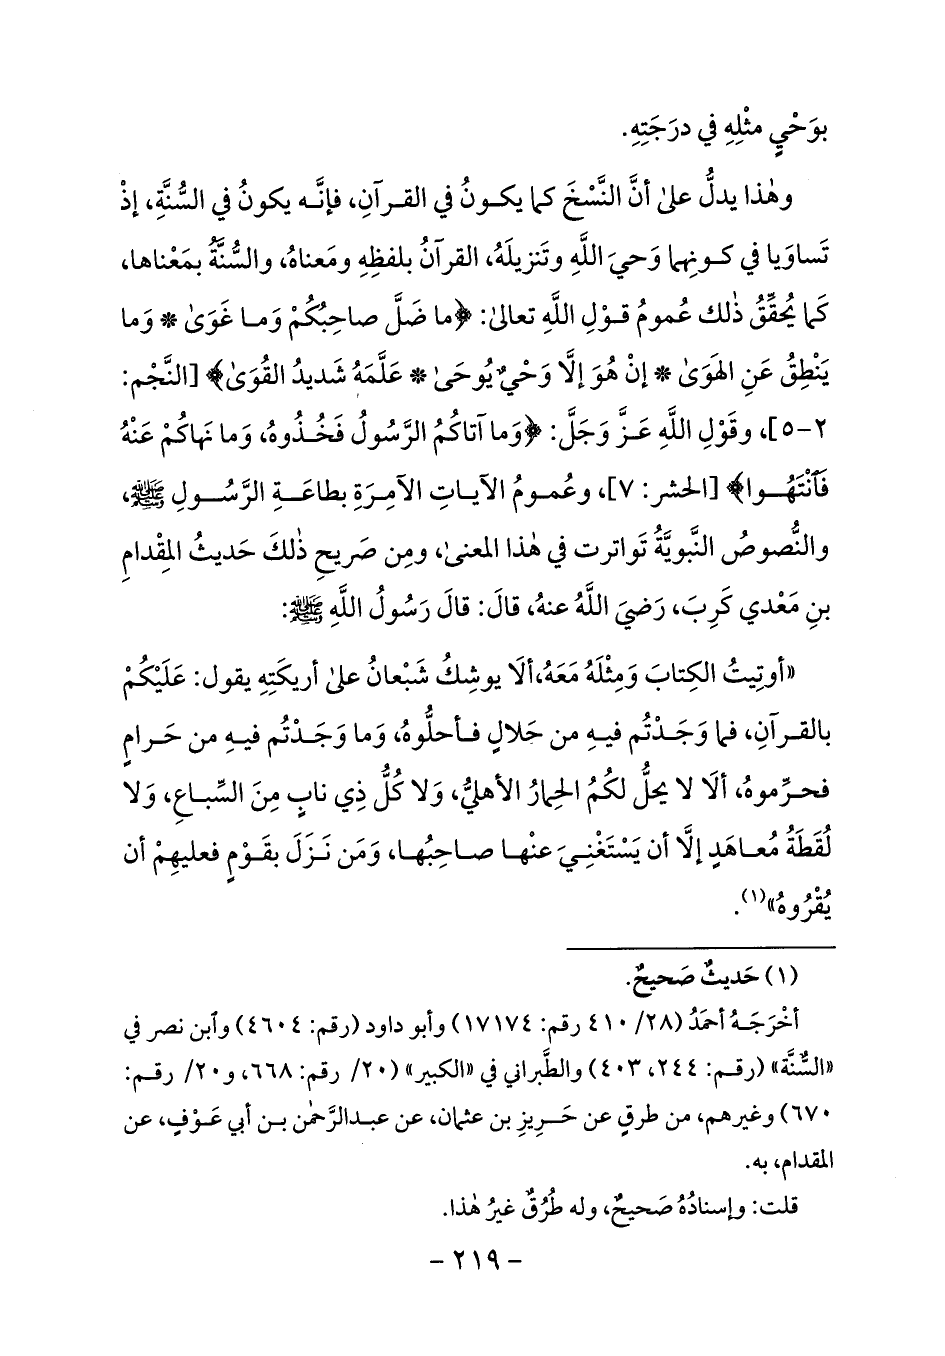 بوَحْيٍ مثْلِهِ في درَجَتِهِ.
وهٰذا يدلُّ علىٰ أنَّ النَّسْخَ كما يكـونُ في القـرآنِ، فإنَّـه يكونُ في السُّنَّةِ، إذْ
تَساوَيا في كـونِهما وَحيَ اللَّهِ وتَنزيلَهُ، القرآنُ بلفظِهِ ومَعناهُ، والسُّنَّةُ بمَعْناها،
كَما يُحقِّقُ ذٰلك عُمومُ قـوْلِ اللَّهِ تعالىٰ: ﴿ما ضَلَّ صاحِبُكُمْ وَمـا غَوَىٰ * وَما
يَنْطِقُ عَنِ الهَوَىٰ * إنْ هُوَ إلَّا وَحْيٌ يُوحَىٰ * عَلَّمَهُ شَديدُ القُوَىٰ﴾ [النَّجْم:
٢-٥]، وقَوْلِ اللَّهِ عَـزَّ وَجَلَّ: ﴿وَما آتاكُمُ الرَّسُولُ فَخُذُوهُ، وَما نَهاكُمْ عَنْهُ
فَٱنْتَهُـوا﴾ [الحشر: ٧]، وعُمومُ الآيـاتِ الآمِـرَةِ بطاعَـةِ الرَّسُـولِ ﷺ،
والنُّصوصُ النَّبويَّةُ تَواترت في هٰذا المعنىٰ، ومِن صَريحِ ذٰلكَ حَديثُ المِقْدامِ
بنِ مَعْدي كَرِبَ، رَضيَ اللَّهُ عنهُ، قالَ: قالَ رَسُولُ اللَّهِ ﷺ:
«أوتِيتُ الكِتابَ وَمِثْلَهُ مَعَهُ،ألَا يوشِكُ شَبْعانُ علىٰ أريكَتِهِ يقول: عَلَيْكُمْ
بالقـرآنِ، فما وَجَدْتُم فيـهِ من حَلالٍ فـأحلُّوهُ، وَما وَجَـدْتُم فيـهِ من حَـرامٍ
فحـرِّموهُ، ألَا لا يحلُّ لكمُ الحِمارُ الأهليُّ، وَلا كُلُّ ذِي نابٍ مِنَ السِّبـاعِ، وَلا
لُقَطَةُ مُعـاهَدٍ إلَّا أن يَسْتَغْنِـيَ عنْهـا صـاحِبُهـا، وَمَن نَـزَلَ بقَـوْمٍ فعليهِمْ أن
يُقْرُوهُ»(١).
(١) حَديثٌ صَحيحٌ.
أخْرَجَـهُ أحمَدُ (٢٨/ ٤١٠ رقم: ١٧١٧٤) وأبو داود (رقم: ٤٦٠٤) وٱبن نصر في
«السُّنَّة» (رقـم: ٢٤٤، ٤٠٣) والطَّبراني في «الكبير» (٢٠/ رقم: ٦٦٨، و٢٠/ رقـم:
٦٧٠) وغيرهم، من طرقٍ عن حَـريزِ بن عثمان، عن عبـدالرَّحمٰن بـن أبي عَـوْفٍ، عن
المقدام، به.
قلت: وإسنادُهُ صَحيحٌ، وله طُرُقٌ غيرُ هٰذا.
- ٢١٩ -